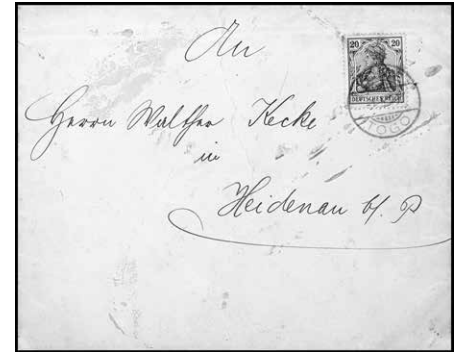 An
20 20
DEUTSCHES REICH
TOGO
Herrn Walther Kecke
in
Heidenau b/. P